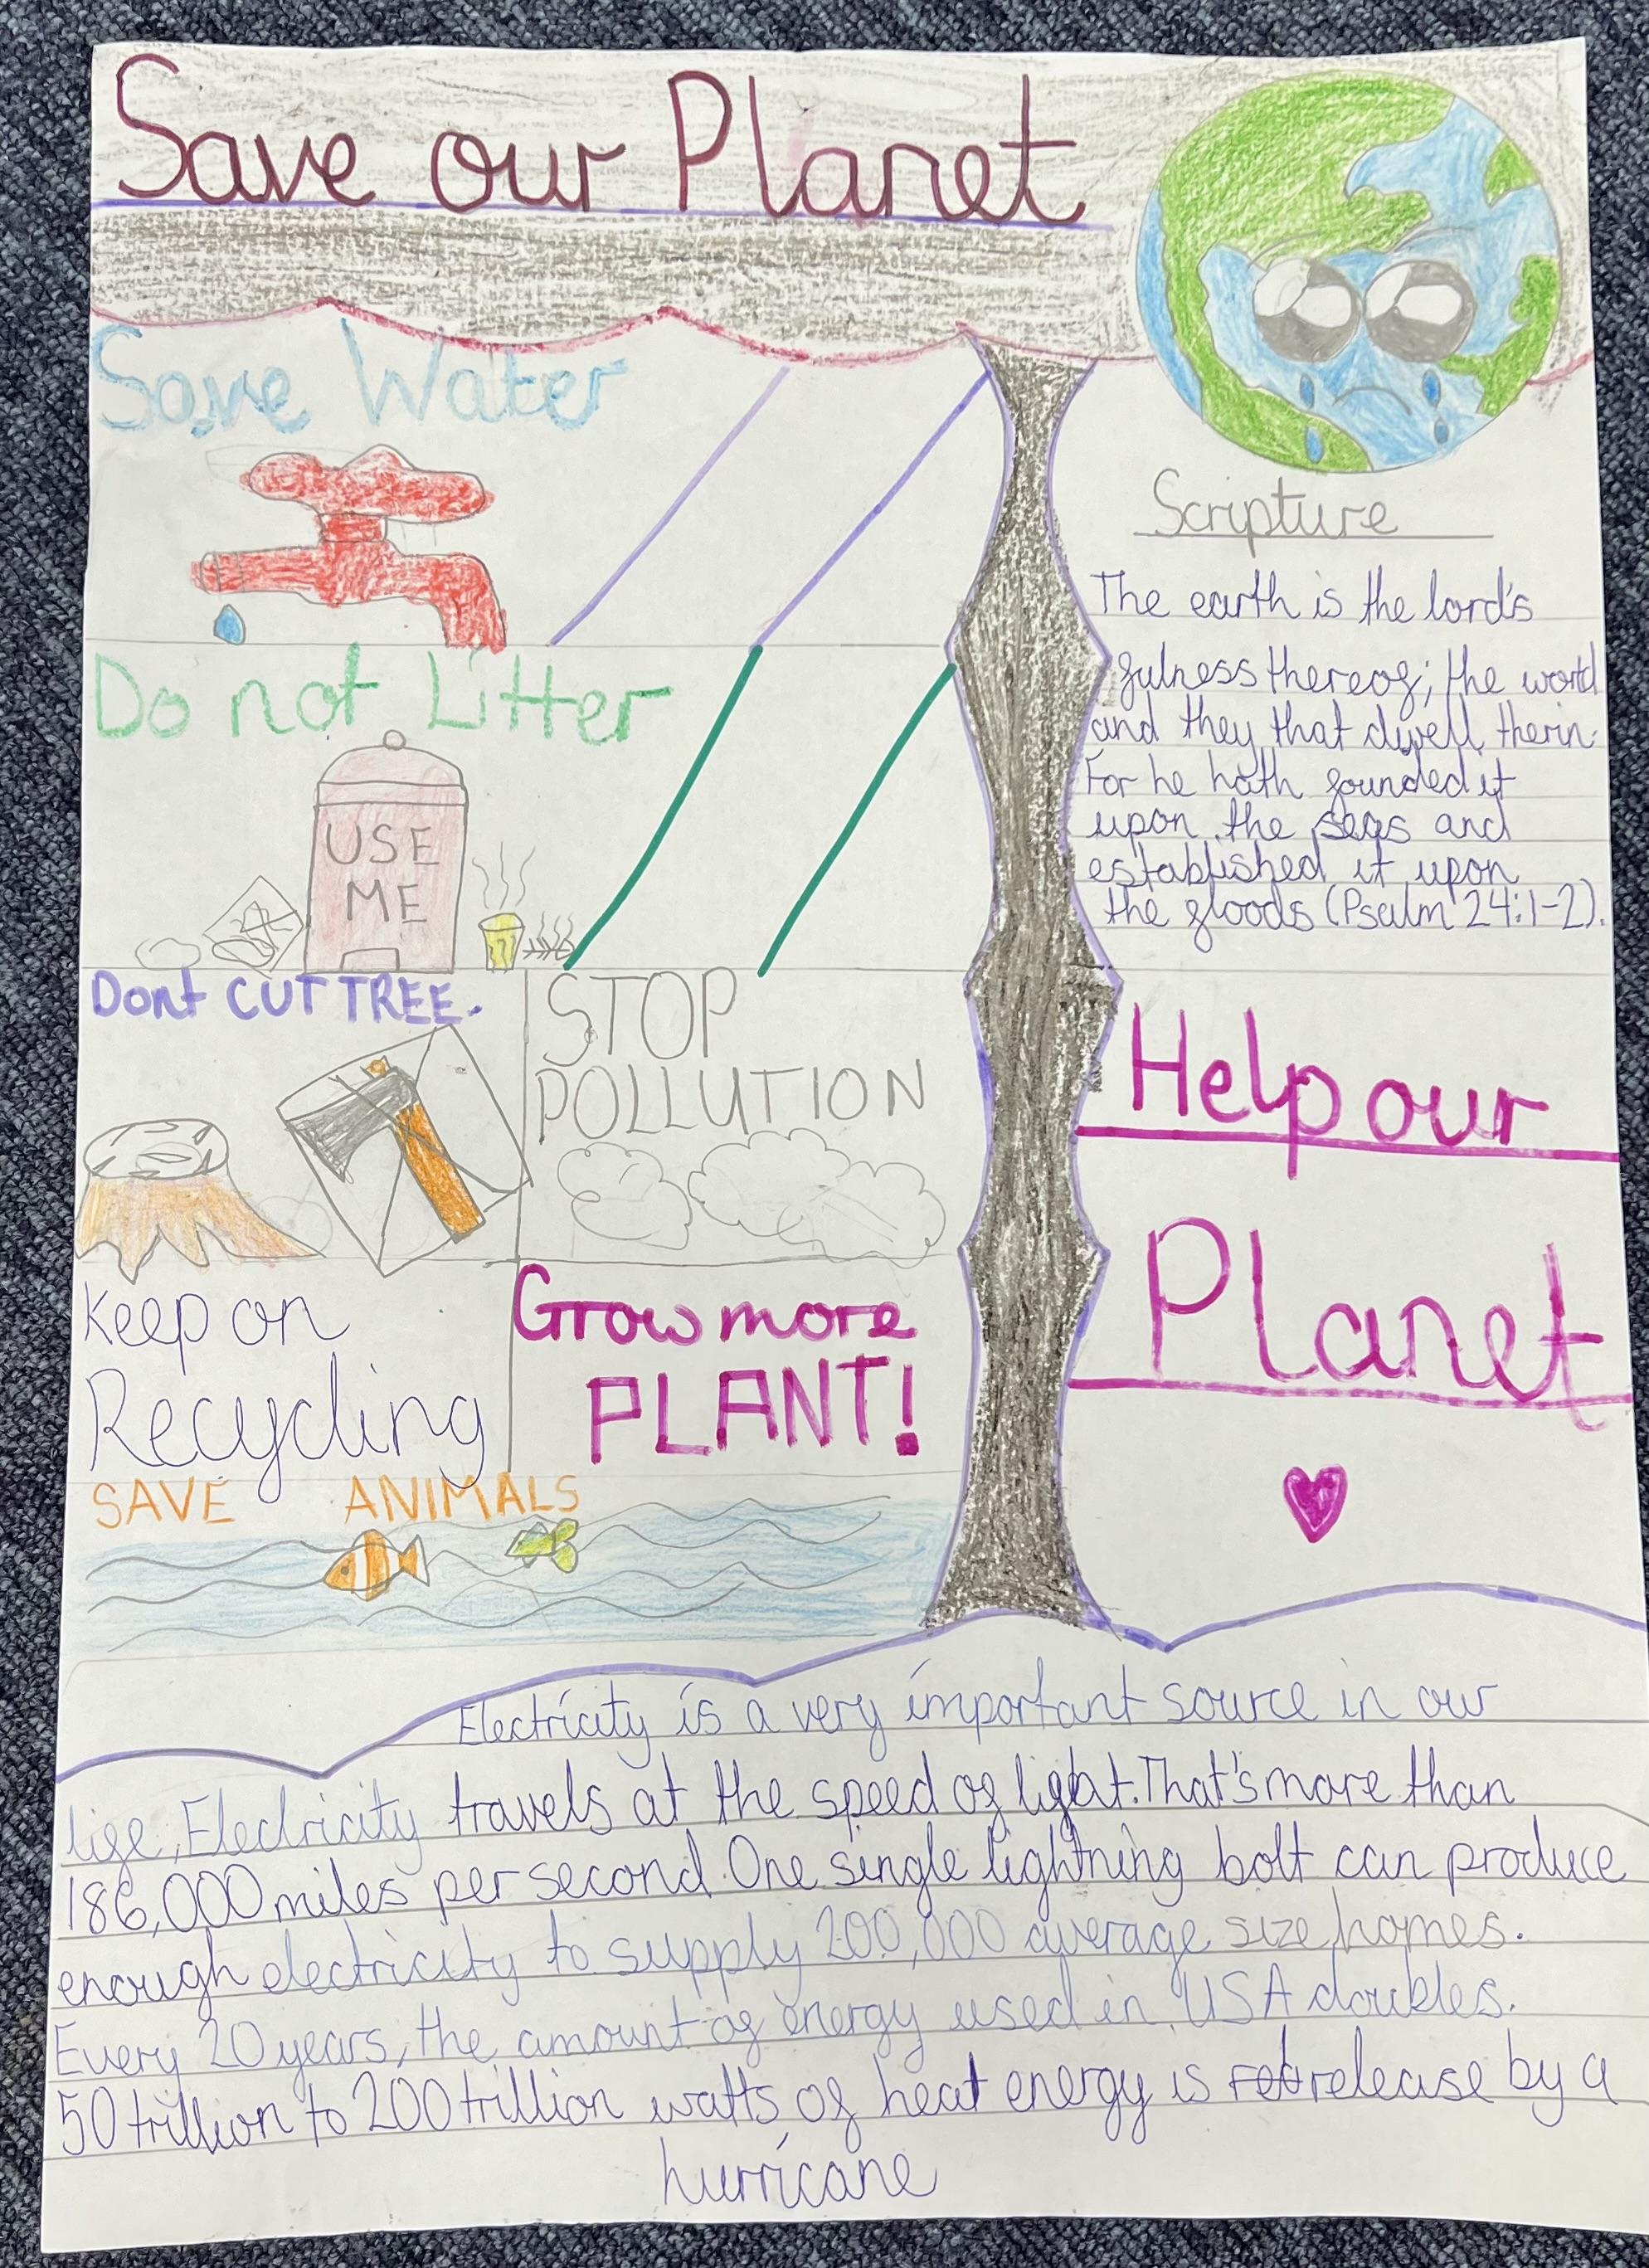 Save our Planet
Save Water
Do not Litter
USE
ME
Dont CUT TREE.
STOP
POLLUTION
Keep on
Recycling
Grow more
PLANT!
SAVE ANIMALS
Scripture
The earth is the lord's
fulness thereof; the world
and they that dwell therin.
For he hath founded it
upon the seas and
established it upon
the floods (Psalm 24:1-2).
Help our
Planet
Electricity is a very important source in our
life, Electricity travels at the speed of light. That's more than
186,000 miles per second. One single lightning bolt can produce
enough electricity to supply 200,000 average size homes.
Every 20 years, the amount of energy used in USA doubles.
50 trillion to 200 trillion watts of heat energy is release by a
hurricane